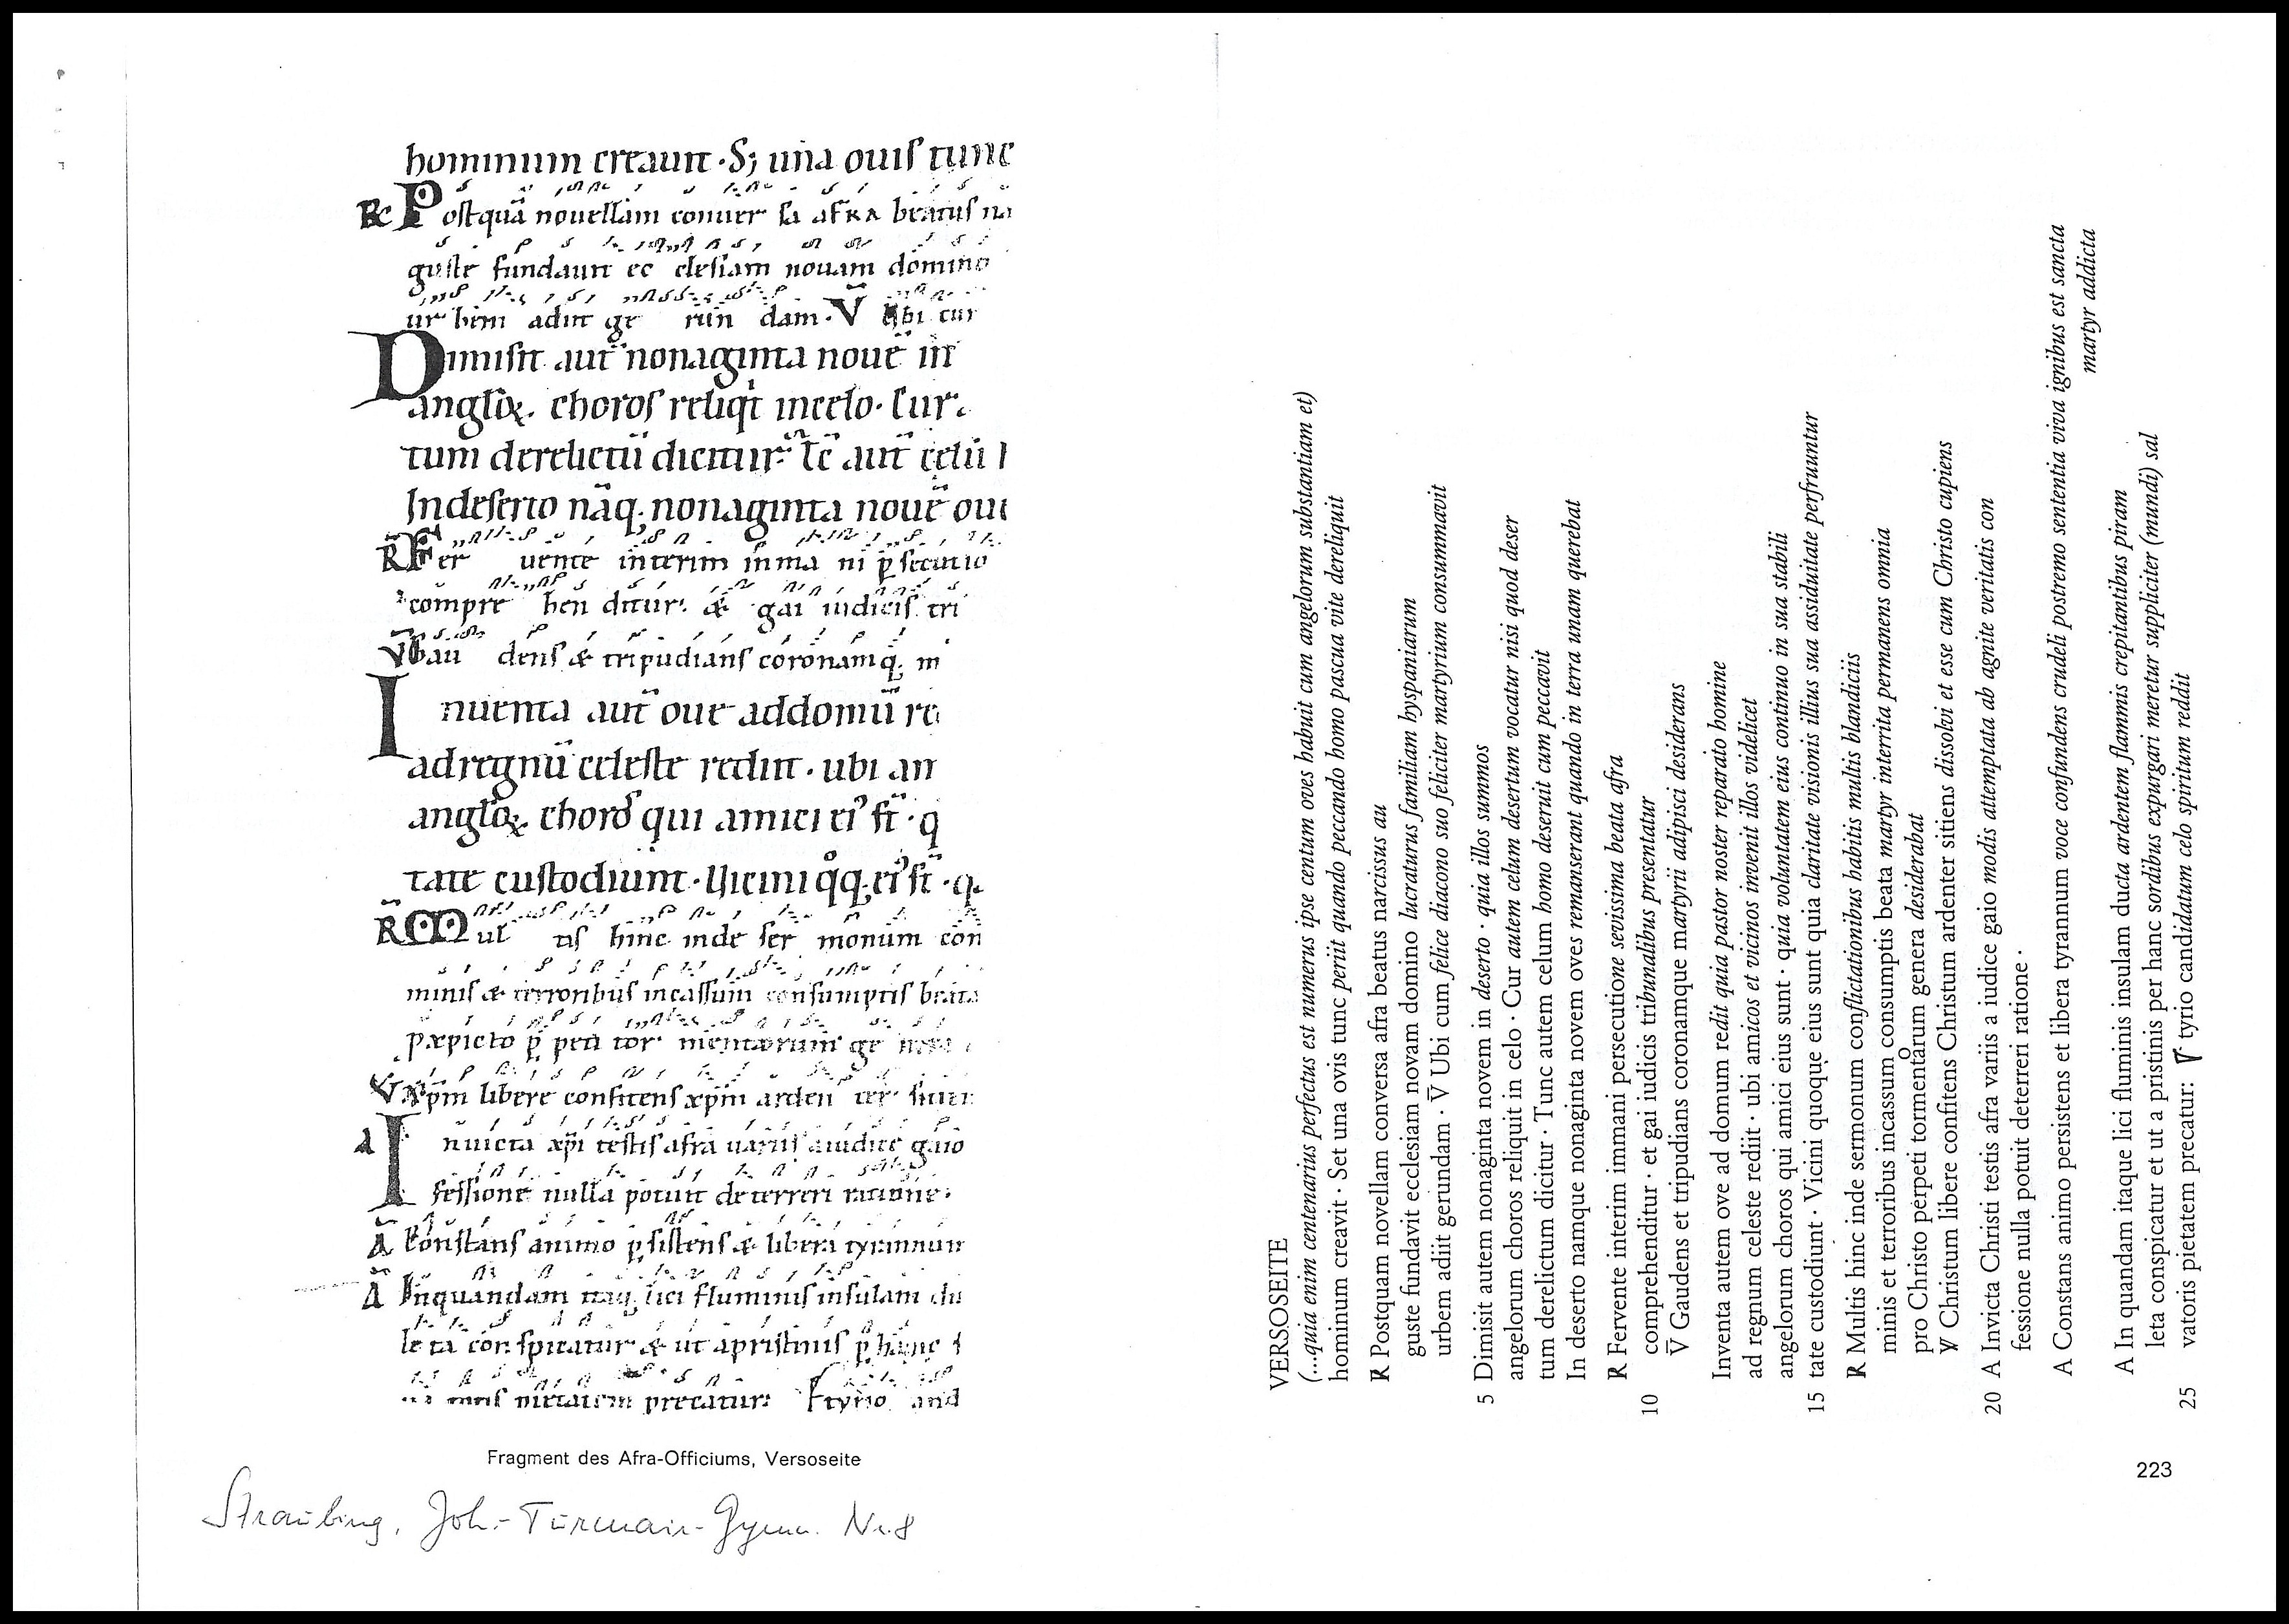 hominum creauit · S; una ouis tunc
R Postquā nouellam conuer sa afra beatus na
guste fundauit ec clesiam nouam domino
ur bem adiit ge run dam · V Ubi cu
Dimisit aut̄ nonaginta nouē in
angloꝝ. choros reliqt incelo · Cur
tum derelictū dicitur · Tc̄ aut̄ celū
Indeserto nāq; nonaginta nouē oui
R Fer uente interim inma ni p̲secutio
compre hen ditur · & gai iudicis tri
V Gau dens & tripudians coronamq; m
Inuenta aut̄ oue addomū re
adregnū celeste rediit · ubi am
angloꝝ. choros qui amici ei' st̄ · q
tate custodiunt · Uicini qq; ei' st̄ · q
R Mul tis hinc inde ser monum con
minis & terroribus incassum consumptis beata
p̲ xpicto p̲ peti tor mentorum ge nera
V Xpm libere confitens xpm arden ter sitien
A Inuicta xpi testis afra uariis aiudice gaio
fessione nulla potuit deterreri ratione ·
A Constans animo p̲sistens & libera tyrannum
A Inquandam itaq; lici fluminis insulam du
le ta con spicatur & ut apristinis p̲ hanc s
precatur: tyrio cand
Fragment des Afra-Officiums, Versoseite
Straubing, Joh.-Turmair-Gymn. Nr. 8
VERSOSEITE
(...quia enim centenarius perfectus est numerus ipse centum oves habuit cum angelorum substantiam et)
hominum creavit · Set una ovis tunc periit quando peccando homo pascua vite dereliquit
R Postquam novellam conversa afra beatus narcissus au
guste fundavit ecclesiam novam domino lucraturus familiam hyspaniarum
urbem adiit gerundam · V̄ Ubi cum felice diacono suo feliciter martyrium consummavit
5 Dimisit autem nonaginta novem in deserto · quia illos summos
angelorum choros reliquit in celo · Cur autem celum desertum vocatur nisi quod deser
tum derelictum dicitur · Tunc autem celum homo deseruit cum peccavit
In deserto namque nonaginta novem oves remanserant quando in terra unam querebat
R Fervente interim immani persecutione sevissima beata afra
10 comprehenditur · et gai iudicis tribunalibus presentatur
V̄ Gaudens et tripudians coronamque martyrii adipisci desiderans
Inventa autem ove ad domum redit quia pastor noster reparato homine
ad regnum celeste rediit · ubi amicos et vicinos invenit illos videlicet
angelorum choros qui amici eius sunt · quia voluntatem eius continuo in sua stabili
15 tate custodiunt · Vicini quoque eius sunt quia claritate visionis illius sua assiduitate perfruuntur
R Multis hinc inde sermonum conflictationibus habitis multis blandiciis
minis et terroribus incassum consumptis beata martyr interrita permanens omnia
pro Christo perpeti tormentarum genera desiderabat
o
V Christum libere confitens Christum ardenter sitiens dissolvi et esse cum Christo cupiens
20 A Invicta Christi testis afra variis a iudice gaio modis attemptata ab agnite veritatis con
fessione nulla potuit deterreri ratione ·
A Constans animo persistens et libera tyrannum voce confundens crudeli postremo sententia viva ignibus est sancta
martyr addicta
A In quandam itaque lici fluminis insulam ducta ardentem flammis crepitantibus piram
leta conspicatur et ut a pristinis per hanc sordibus expurgari meretur suppliciter (mundi) sal
25 vatoris pietatem precatur: V tyrio candidatum celo spiritum reddit
223